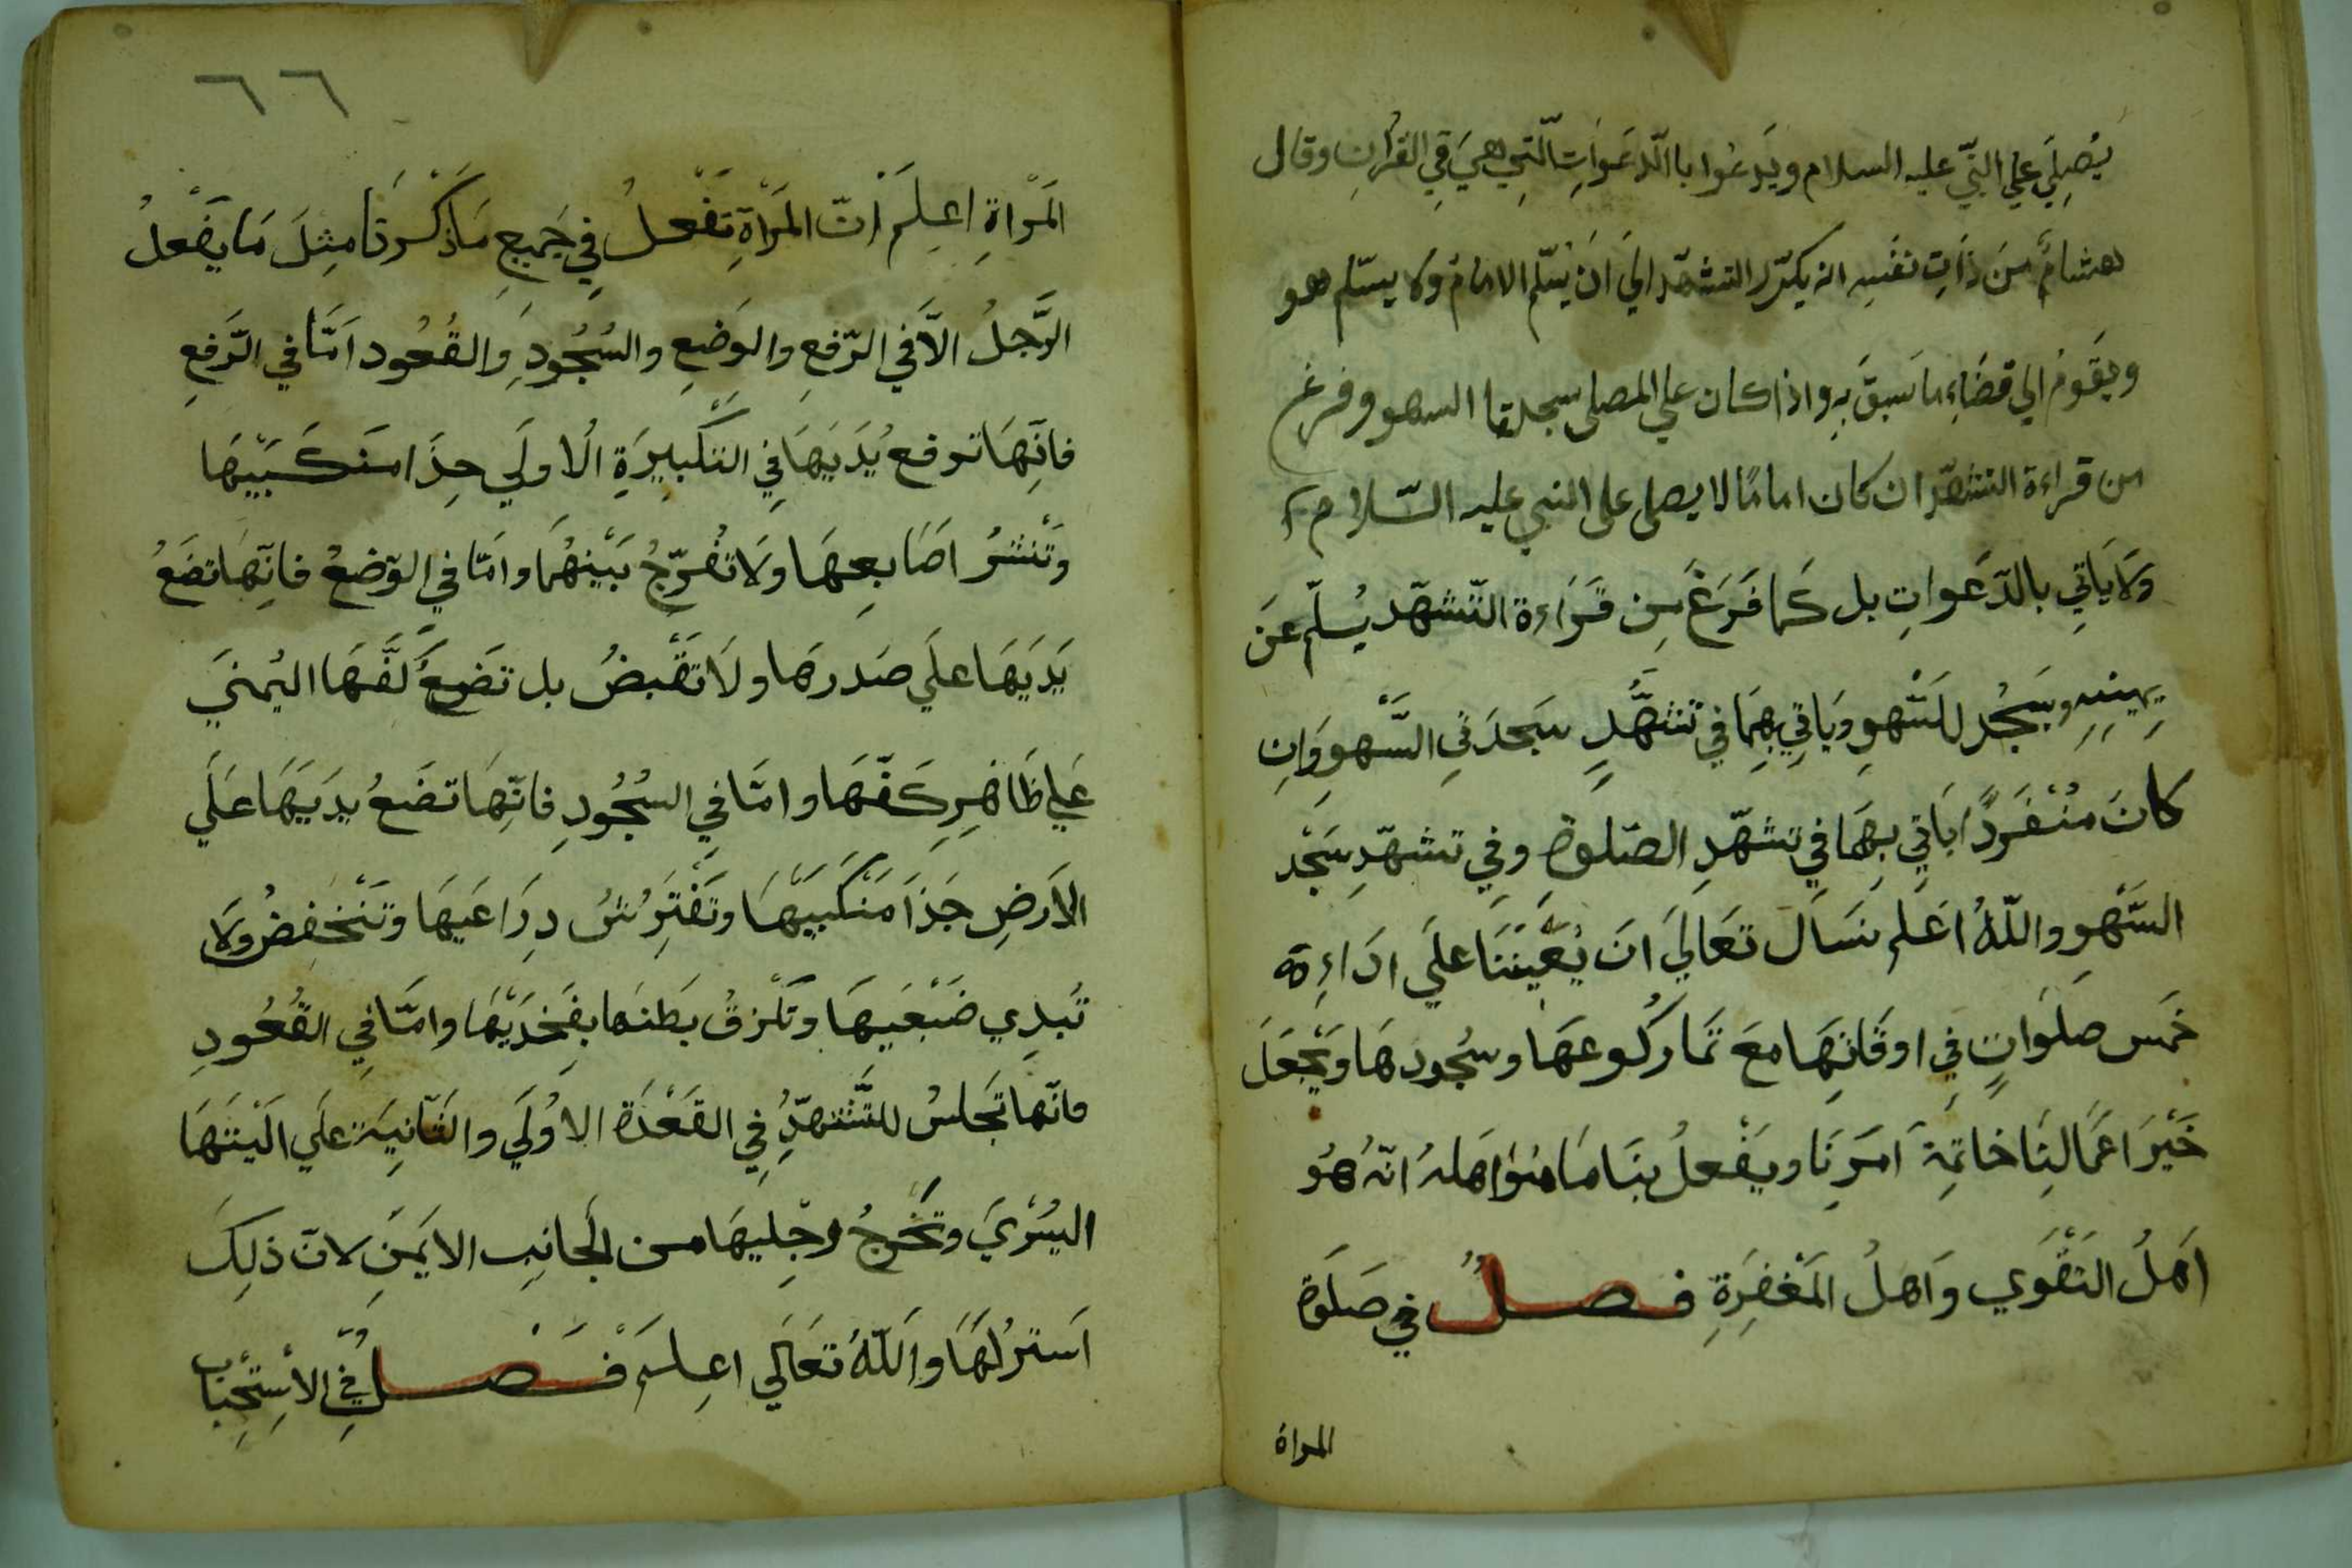 يُصِلِيَ علي النبّي عليه السلام ويَدعُوا باالّدعَوَاتِ الّتِي هِيَ فِي القُرانِ وقال
هشامٌ مِنَ ذَاتِ نفسِهِ انه يكرّر التشهّد اليَ انَ يُسَلّم الامامُ ولا يسلّم هو
ويَقَومُ الي قضَاءِ ما سَبقَ بِهِ واذا كان علي المصلى سجدتا السهو وفرغ
من قراءة التشهّد ان كان امامًا لا يصلى على النبي عليه السّلام
وَلَا يَاتِي بالدّعَواتِ بل كَما فَرَغَ مِن قَرَاءة التّشهّد يُسلّم عَن
يمِينِهِ ويَسجُد للسّهوِ ويَاتِي بِهِمَا في تَشهُّدِ سَجدَتيِ السَّهو وَاِن
كانَ مُنْفَرَدًا ياَتِي بِهِمَا في تشهّدِ الصّلوة وفي تشهّدِ سَجْد
السَّهْوِ واللّهُ اعَلم نسَاَل تعَالَي انَ يُعَيِّنَنَا علَي ادَاءِ ة
خمَس صَلَوَاتٍ فِي اوقَاتِهَا معَ تمَا ركُوعهَا وسُجُودهَا وَيَجْعَلَ
خَيْرَ اعَمَالِنَا خاتِمَةَ امَرِنَا ويَفْعلُ بنَا مَا هُوَ اهَلهُ انّهُ هُو
اَهَلُ التَقْوَي وَاهلُ المَغْفِرَةِ فصلٌ في صَلَوة
المراة
٦٦
المَرْاةِ اعِلَم اَنّ المَرْاَةِ تفْعلُ في جَميِعِ مَاذَكَرْنَا مِثِلَ مَا يَفْعلُ
الرَّجلُ الاَّ في الرّفعِ والوَضعِ والسُجُودِ وَالقُعُود اَمَّا في الرَّفعِ
فاِنَّهَا ترفع يُدَيَهَا فِي التكْبِيرَةِ الُاولَي حِذَا منكَبَيْهَا
وتَنْشرُ اصَابِعهَا ولَا تُفرّجُ بَيْنهُمَا وامّا في الوَضعُ فاِنّهَا تضَعُ
يَدَيَهَا علَي صَدرهَا ولَا تقْبضُ بل تضَعُ كَفَّهَا اليُمنَي
عَلي ظَاهِرِ كَفّهَا وامَّا في السُجُودِ فانّهَا تضَعُ يدَيَهَا علَي
الاَرضِ حَذَا مَنْكبَيْهَا وتَفْتَرِشُ دِرَاعَيهَا وتَنْخفِضُ ولَا
تُبدِي ضَبْعَيهَا وتَلْزقُ بَطنهَا بفَخذَيْهَا وامَّا في القُعُودِ
فانّها تجَلسُ للتَّشهّدِ فِي القَعْدَة الاوُلَي والثّانِيَة علَي الْيَتهَا
اليُسْرَي وتخَرجُ رِجْلِيهَا من الجَانِب الايَمنِ لانّ ذلِكَ
اَستَرُ لهَا وَاللّهُ تعَالَي اعِلم فَصلٌ في الاْسِتْحِبَاب